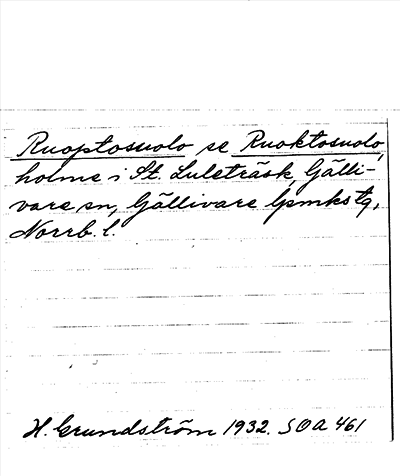 Ruoptosuolo se Ruoktosuolo,
holme i St. Luleträsk, Gälli-
vare sn, Gällivare lpmkstg,
Norrb. l.
H. Grundström 1932. SOA 461